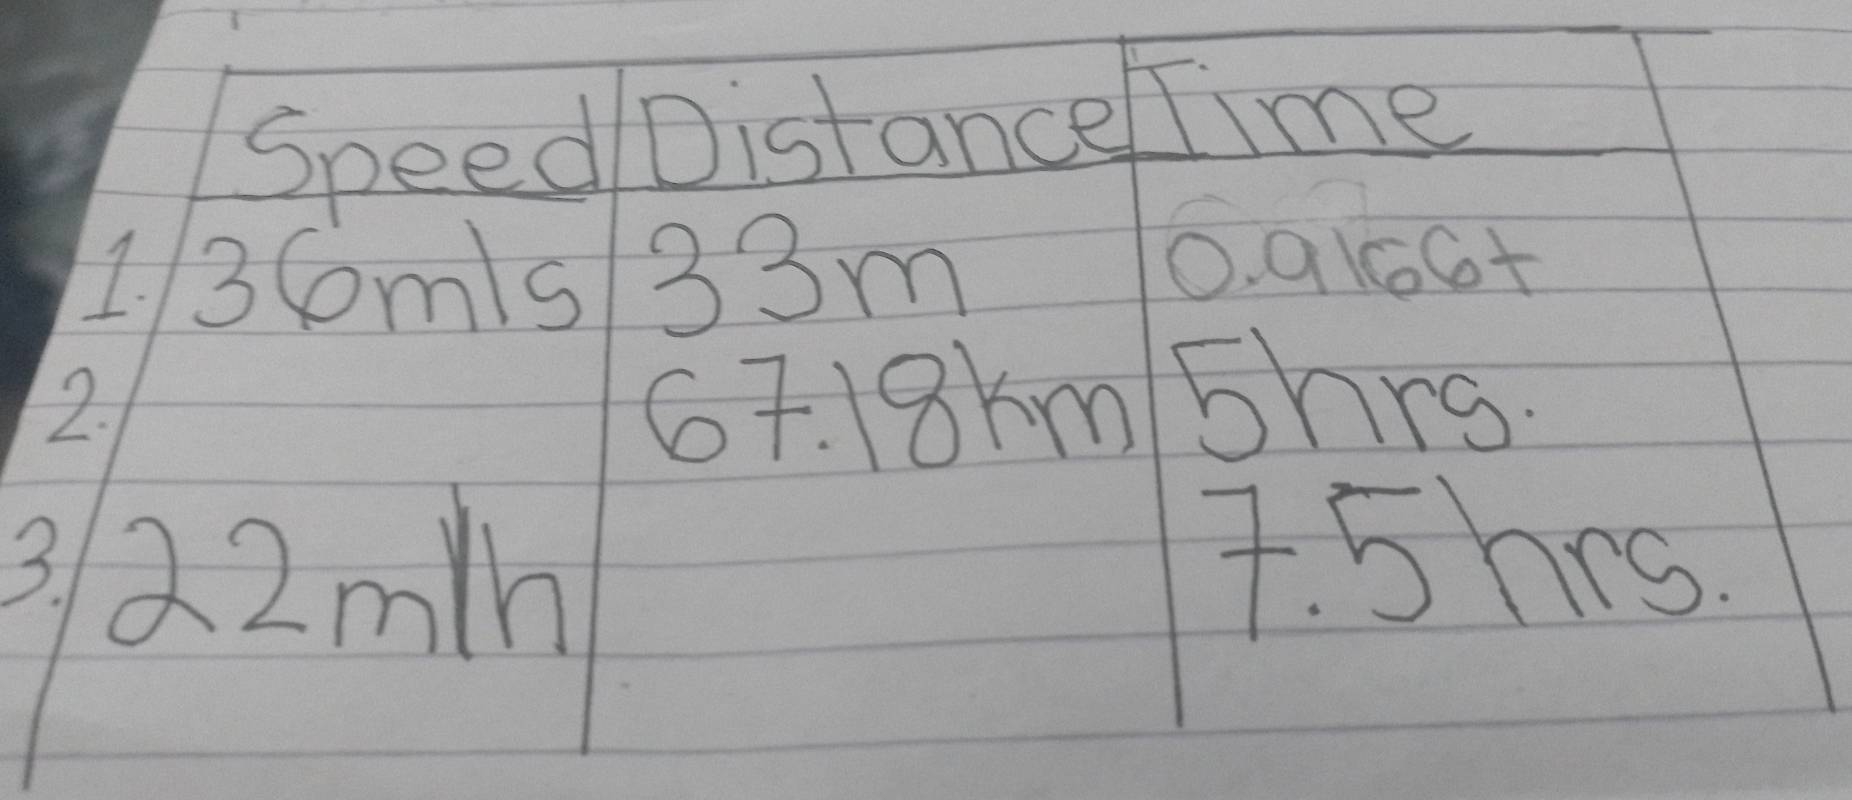 Speed Distance Time
1. 36m/s 33m 0.9166t
2. 67.18km 5hrs.
3. 22m/h 7.5hrs.